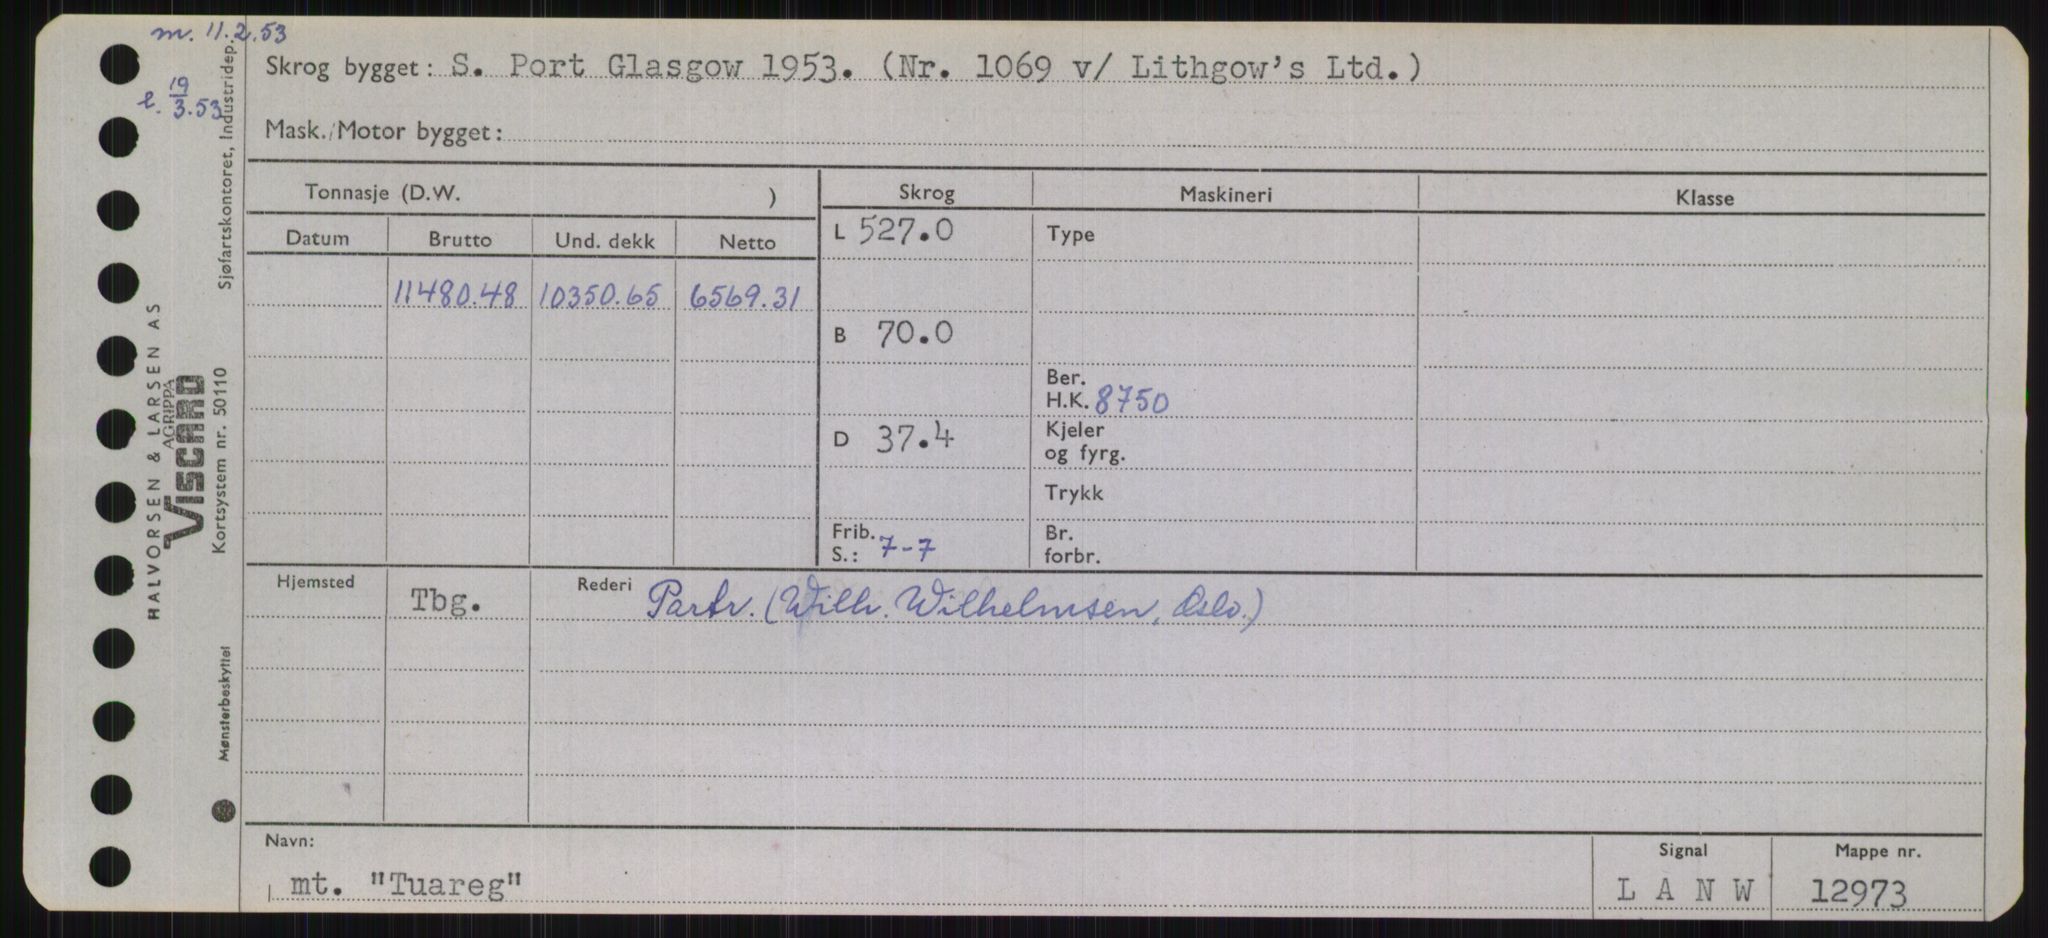 m. 11.2.53
l. 19/3.53
Skrog bygget: S. Port Glasgow 1953. (Nr. 1069 v/ Lithgow's Ltd.)
Mask./Motor bygget:
Tonnasje (D.W. )
Skrog
Maskineri
Klasse
Datum
Brutto
Und. dekk
Netto
L 527.0
Type
11480.48
10350.65
6569.31
B 70.0
Ber.
H.K. 8750
D 37.4
Kjeler
og fyrg.
Trykk
Frib.
S.: 7-7
Br.
forbr.
Hjemsted
Tbg.
Rederi
Partr. (Wilh. Wilhelmsen, Oslo.)
Navn:
mt. "Tuareg"
Signal
L A N W
Mappe nr.
12973
HALVORSEN & LARSEN AS
AGRIPPA
VISCARD
Mønsterbeskyttet
Kortsystem nr. 50110
Sjøfartskontoret, Industridep.